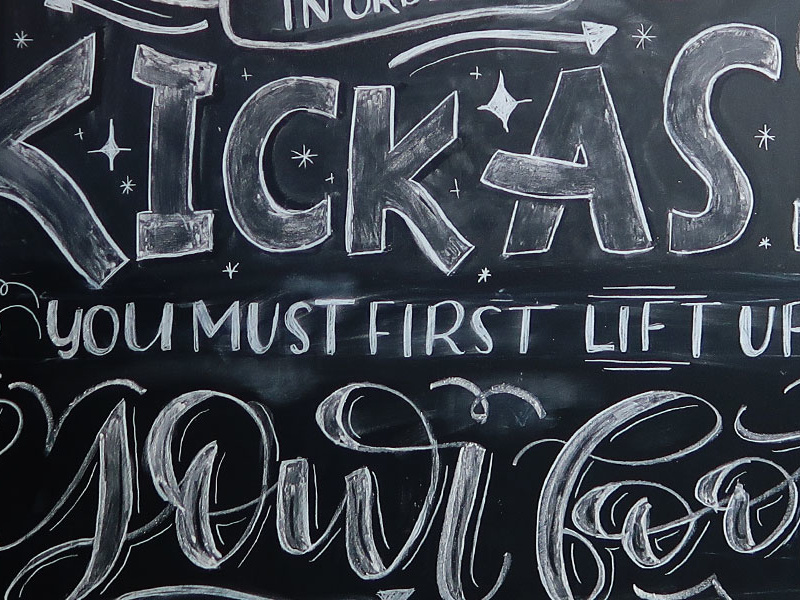 IN ORDE
KICKAS
YOU MUST FIRST LIFT UP
your foo